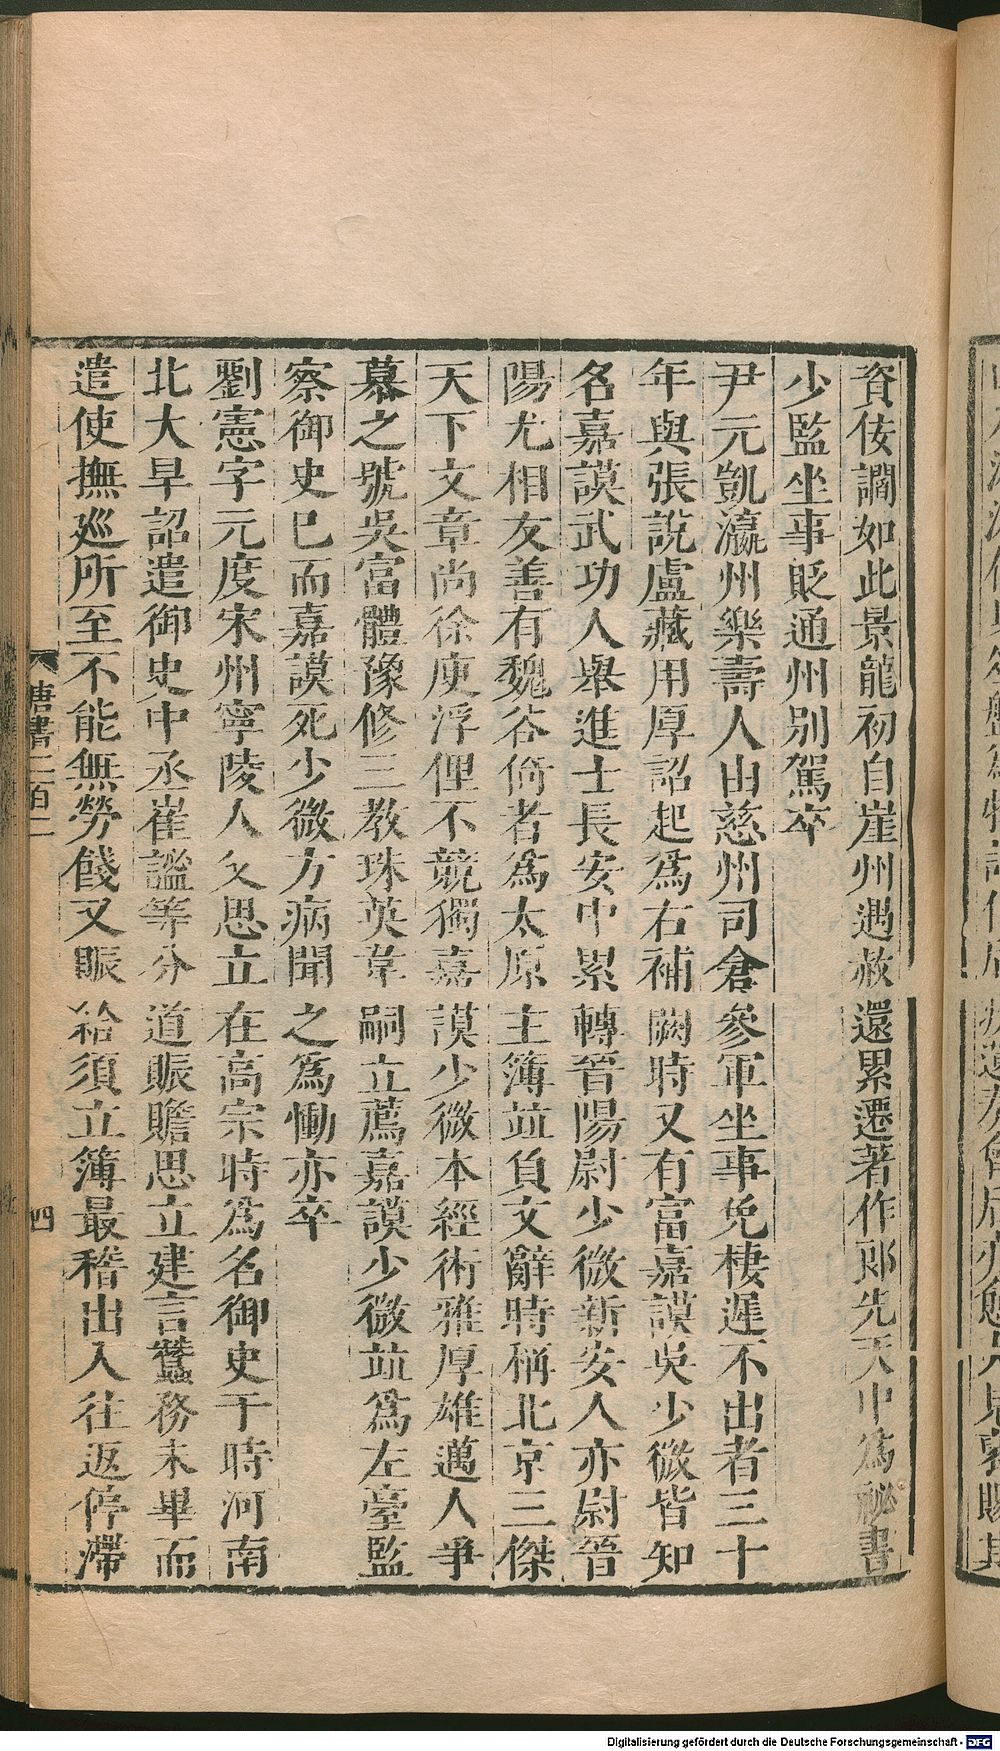 資佞譎如此景龍初自崖州遇赦還累遷著作郎先天中為秘書
少監坐事貶通州別駕卒
尹元凱瀛州樂壽人由慈州司倉參軍坐事免棲遲不出者三十
年與張說盧藏用厚詔起為右補闕時又有富嘉謨吳少微皆知
名嘉謨武功人舉進士長安中累轉晉陽尉少微新安人亦尉晉
陽尤相友善有魏谷倚者為太原主簿竝負文辭時稱北京三傑
天下文章尚徐庾浮俚不競獨嘉謨少微本經術雅厚雄邁人爭
慕之號吳富體豫修三教珠英韋嗣立薦嘉謨少微竝為左臺監
察御史已而嘉謨死少微方病聞之為慟亦卒
劉憲字元度宋州寧陵人父思立在高宗時為名御史于時河南
北大旱詔遣御史中丞崔謐等分道賑贍思立建言蠶務未畢而
遣使撫廵所至不能無勞餞又賑給須立簿最稽出入往返停滯
唐書二百二
四
Digitalisierung gefördert durch die Deutsche Forschungsgemeinschaft - DFG